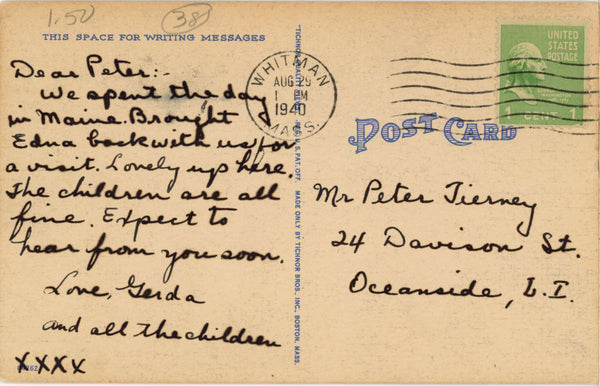 1.50
38
THIS SPACE FOR WRITING MESSAGES
Dear Peter:-
We spent the day
in Maine. Brought
Edna back with us for
a visit. Lonely up here.
The children are all
fine. Expect to
hear from you soon.
Love, Gerda
and all the children
XXXX
MADE ONLY BY TICHNOR BROS. INC., BOSTON, MASS.
WHITMAN
AUG 29
1 PM
1940
MASS.
UNITED
STATES
POSTAGE
1 CENT 1
POST CARD
Mr Peter Tierney
24 Davison St.
Oceanside, L.I.